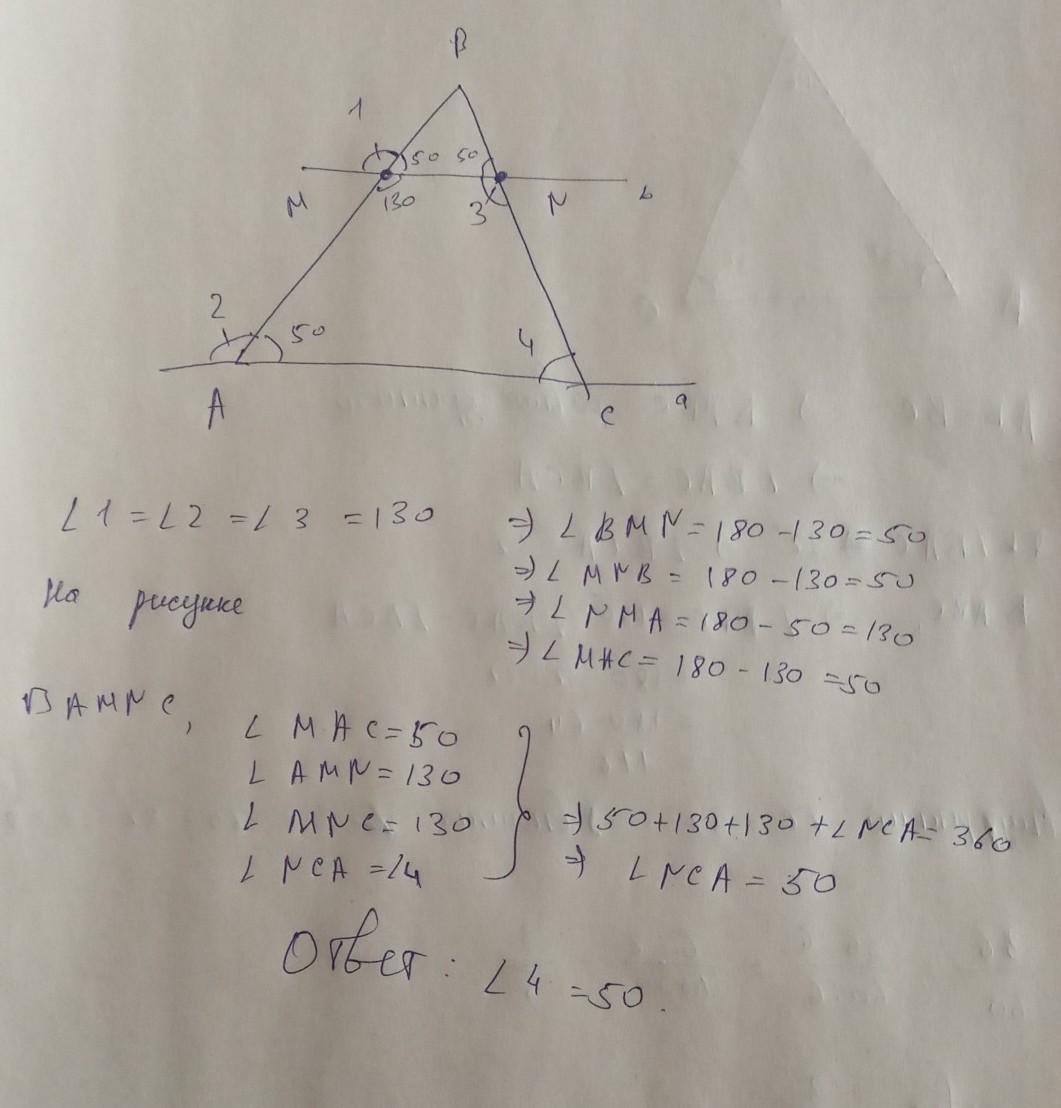 B
1
50 50
M 130 3 N b
2
50 4
A C a
∠1 = ∠2 = ∠3 = 130
На рисунке
=> ∠BMN = 180 - 130 = 50
=> ∠MNB = 180 - 130 = 50
=> ∠NMA = 180 - 50 = 130
=> ∠MAC = 180 - 130 = 50
В AMNC,
∠ MAC = 50
∠ AMN = 130
∠ MNC = 130
∠ NCA = ∠4
=> 50 + 130 + 130 + ∠NCA = 360
=> ∠NCA = 50
Ответ: ∠4 = 50.